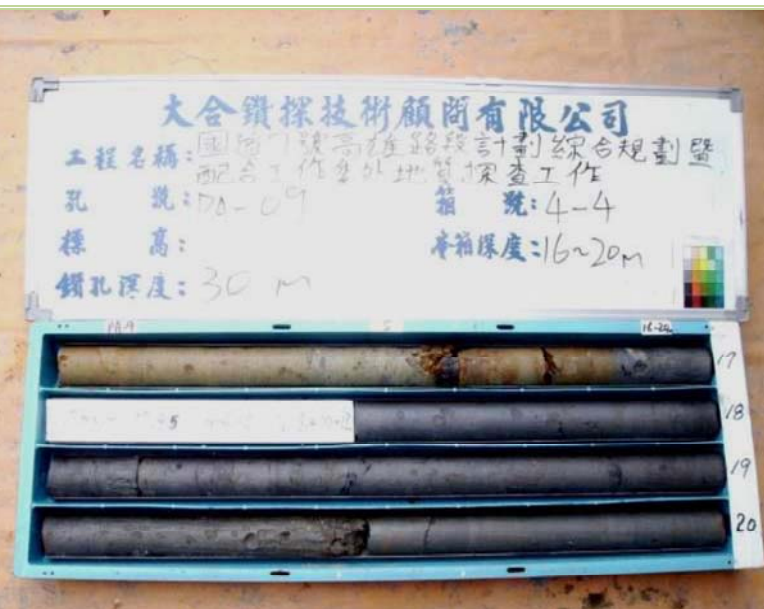 大合鑽探技術顧問有限公司
工程名稱：國道7號高雄路段計劃綜合規劃暨
配合工作委外地質探查工作
孔 號：PA-09 箱 號：4-4
標 高： 本箱深度：16~20m
鑽孔深度：30 m
PA-9 16-20m
17
18
19
20